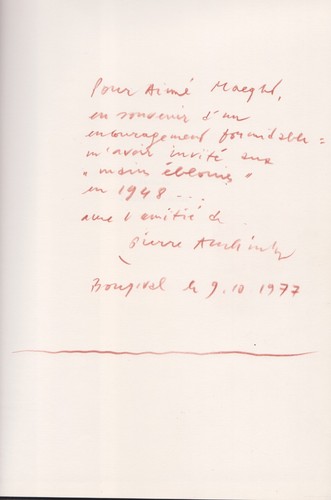 Pour Aimé Maeght,
en souvenir d'un
encouragement formidable =
m'avoir invité aux
"mains éblouies"
en 1948 ...
avec l'amitié de
Pierre Alechinsky
Bougival le 9.10 1977